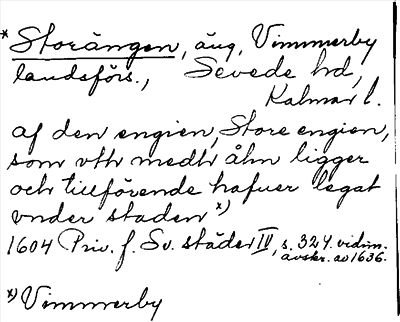 * Storängen, äng, Vimmerby
landsförs., Sevede hd,
Kalmar l.
af den engien, Store engien,
som vth medh åhn ligger
och tillförende hafuer legat
vnder staden x)
1604 Priv. f. Sv. städer IV, s. 324. vidim.
avskr. av 1636.
x) Vimmerby